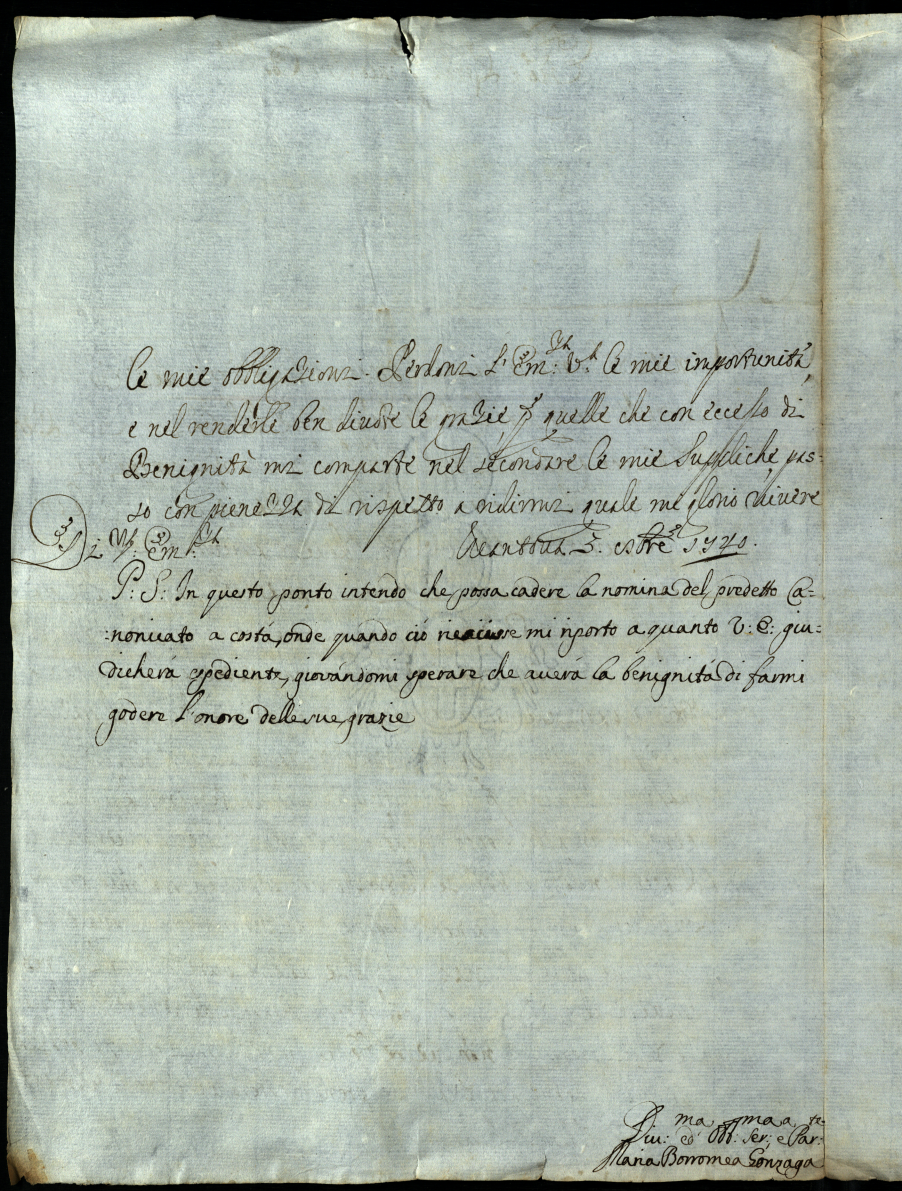 le mie obbligazioni. Perdoni l'Em:za V:a le mie importunità,
e nel renderle ben divote le grazie p quelle che con eccesso di
Benignità mi comparte nel secondare le mie Suppliche, pas=
so con pienezza di rispetto a ridirmi quale mi glorio vivere
Di V: Em:za Mantova 3. Ottbre 1740.
P: S: In questo ponto intendo che possa cadere la nomina del predetto Ca=
=nonicato a costá, onde quando ció riesisse mi riporto a quanto V: E: giu=
dicherá espediente, giovándomi sperare che averá la benignitá di farmi
godere l'onore delle sue grazie
Div:ma ed Obb:ma Ser:a e Par:te
Maria Borromea Gonzaga